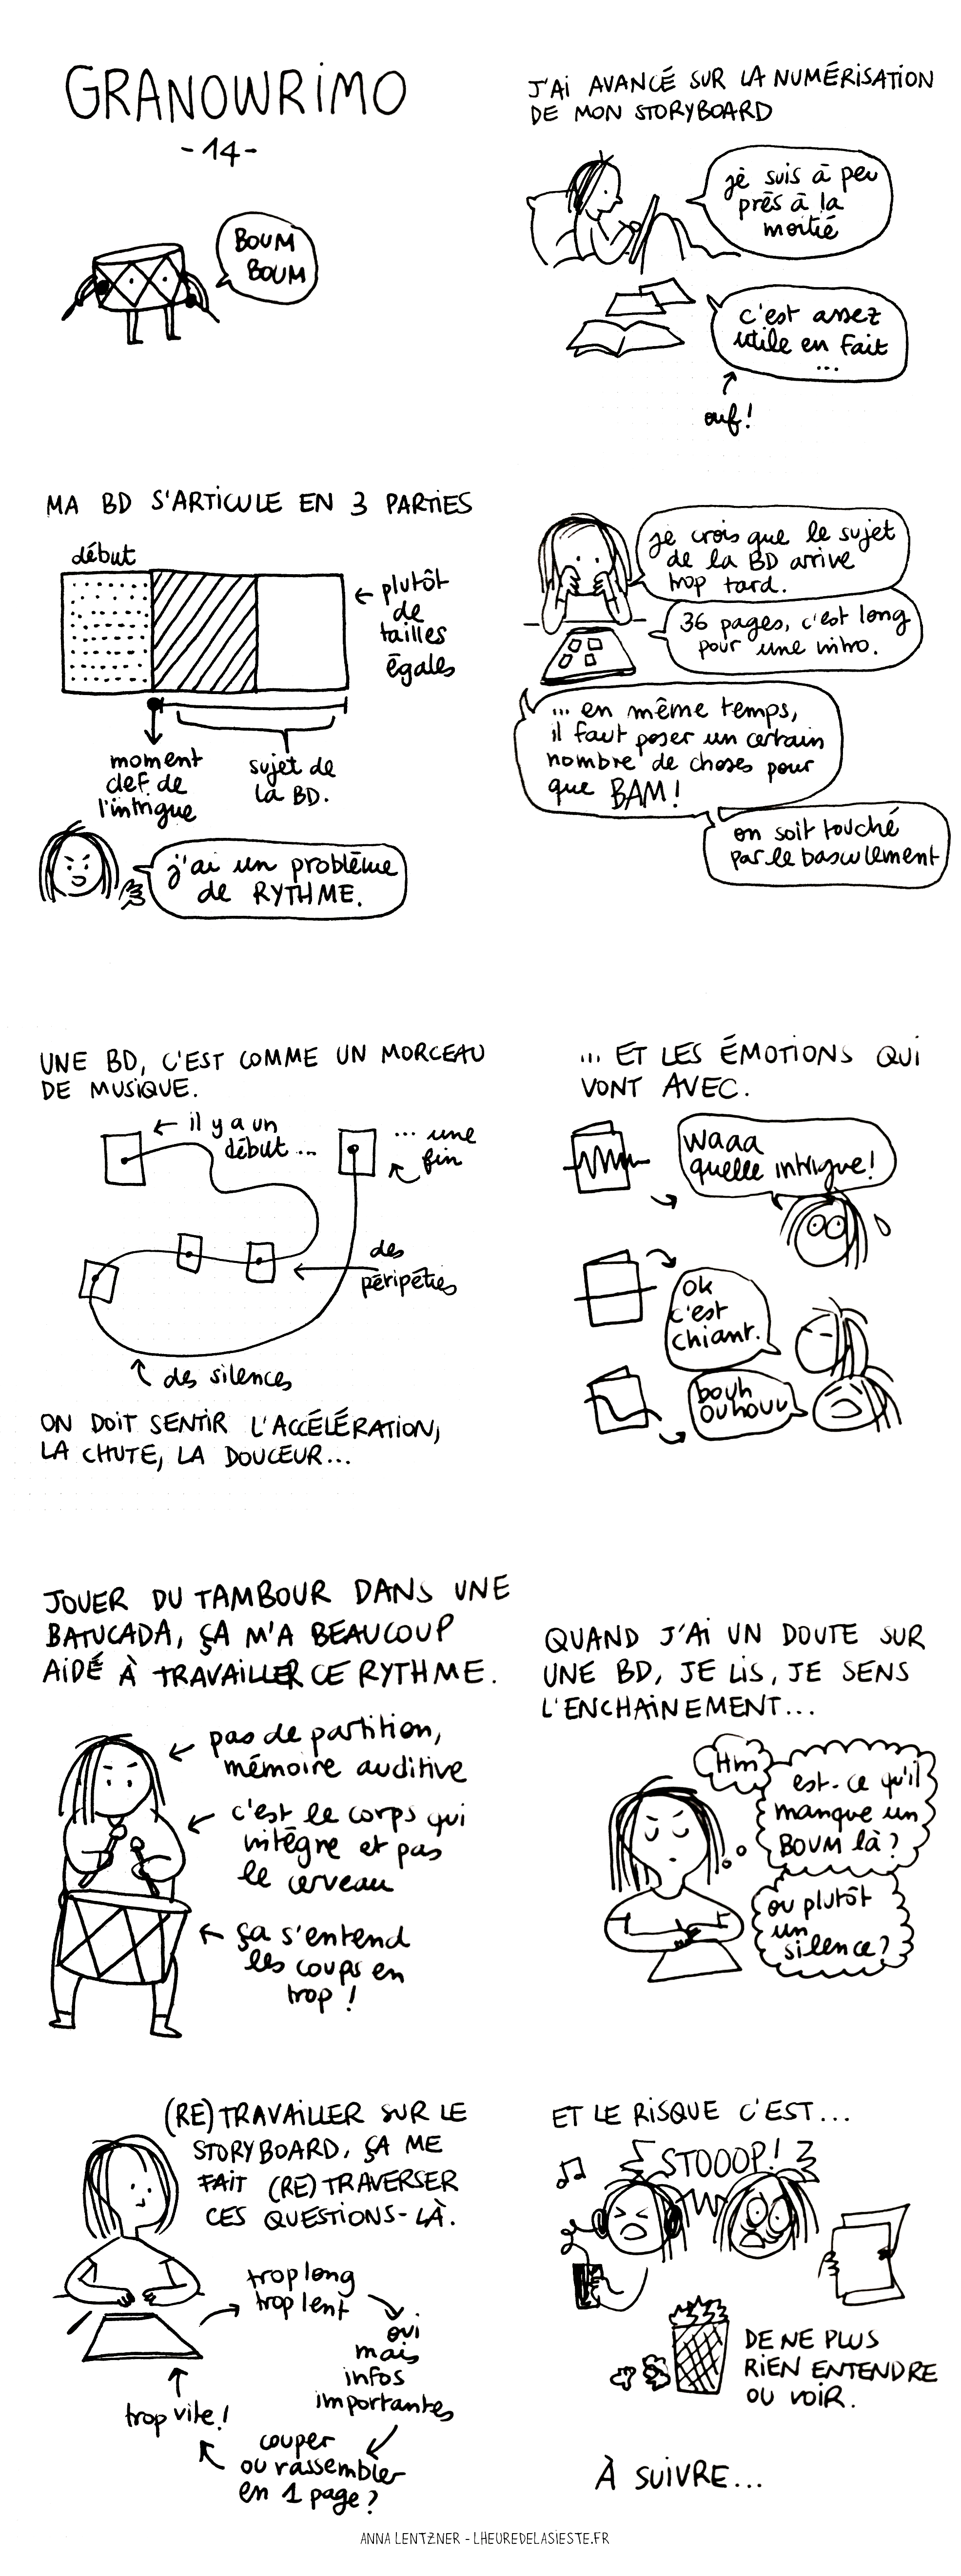 GRANOWRIMO
-14-
BOUM
BOUM
J'AI AVANCÉ SUR LA NUMÉRISATION
DE MON STORYBOARD
je suis à peu
près à la
moitié
c'est assez
utile en fait
...
ouf!
MA BD S'ARTICULE EN 3 PARTIES
début
plutôt
de
tailles
égales
moment
clef de
l'intrigue
sujet de
la BD.
j'ai un problème
de RYTHME.
je crois que le sujet
de la BD arrive
trop tard.
36 pages, c'est long
pour une intro.
... en même temps,
il faut poser un certain
nombre de choses pour
que BAM!
on soit touché
par le basculement
UNE BD, C'EST COMME UN MORCEAU
DE MUSIQUE.
il y a un
début...
... une
fin
des
péripéties
des silences
ON DOIT SENTIR L'ACCÉLÉRATION,
LA CHUTE, LA DOUCEUR...
... ET LES ÉMOTIONS QUI
VONT AVEC.
waaa
quelle intrigue!
ok
c'est
chiant.
bouh
ouhouu
JOUER DU TAMBOUR DANS UNE
BATUCADA, ÇA M'A BEAUCOUP
AIDÉ À TRAVAILLER CE RYTHME.
pas de partition,
mémoire auditive
c'est le corps qui
intègre et pas
le cerveau
ça s'entend
les coups en
trop!
QUAND J'AI UN DOUTE SUR
UNE BD, JE LIS, JE SENS
L'ENCHAINEMENT...
Hm
est-ce qu'il
manque un
BOUM là?
ou plutôt
un
silence?
(RE)TRAVAILLER SUR LE
STORYBOARD, ÇA ME
FAIT (RE)TRAVERSER
CES QUESTIONS-LÀ.
trop long
trop lent
oui
mais
infos
importantes
couper
ou rassembler
en 1 page?
trop vite!
ET LE RISQUE C'EST...
STOOOP!
DE NE PLUS
RIEN ENTENDRE
OU VOIR.
À SUIVRE...
ANNA LENTZNER - LHEUREDELASIESTE.FR